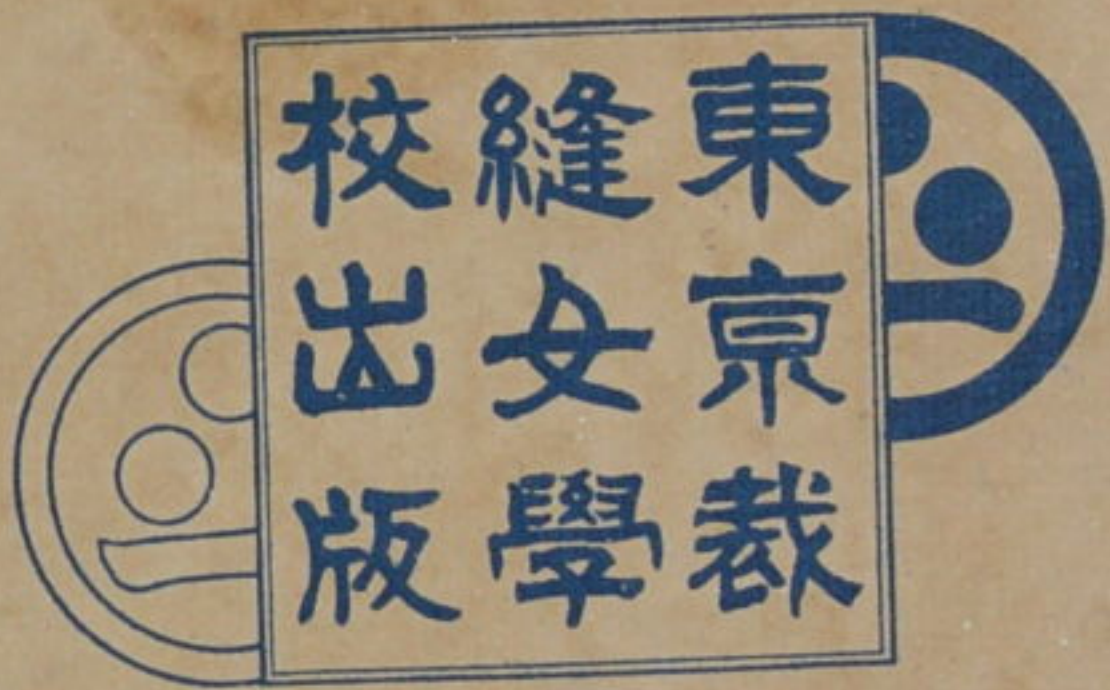 東京裁
縫女學
校出版